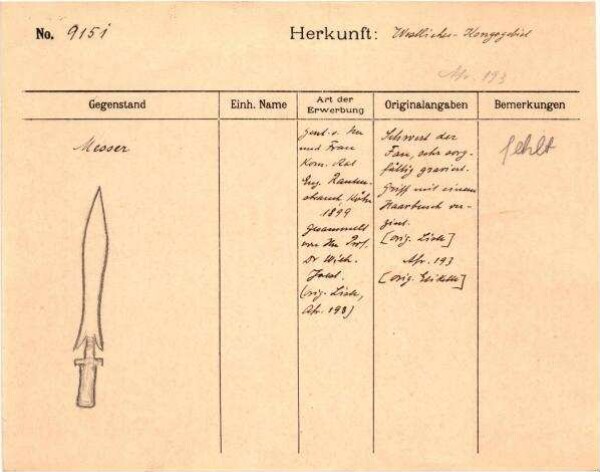 No. 9151 Herkunft: Westliches Kongogebiet
Afr. 193
Gegenstand Einh. Name Art der Erwerbung Originalangaben Bemerkungen
Messer
Gesch. v. Hn
und Frau
Kom. Rat
Eug. Rauten-
strauch, Köln
1899
Gesammelt
von Hn Prof.
Dr Wilh.
Joest.
(orig. Liste,
Afr. 193)
Schwert der
Fan, sehr sorg-
fältig graviert.
Griff mit einem
Haarbusch ver-
ziert.
[orig. Liste]
Afr. 193
[orig. Etikette]
fehlt